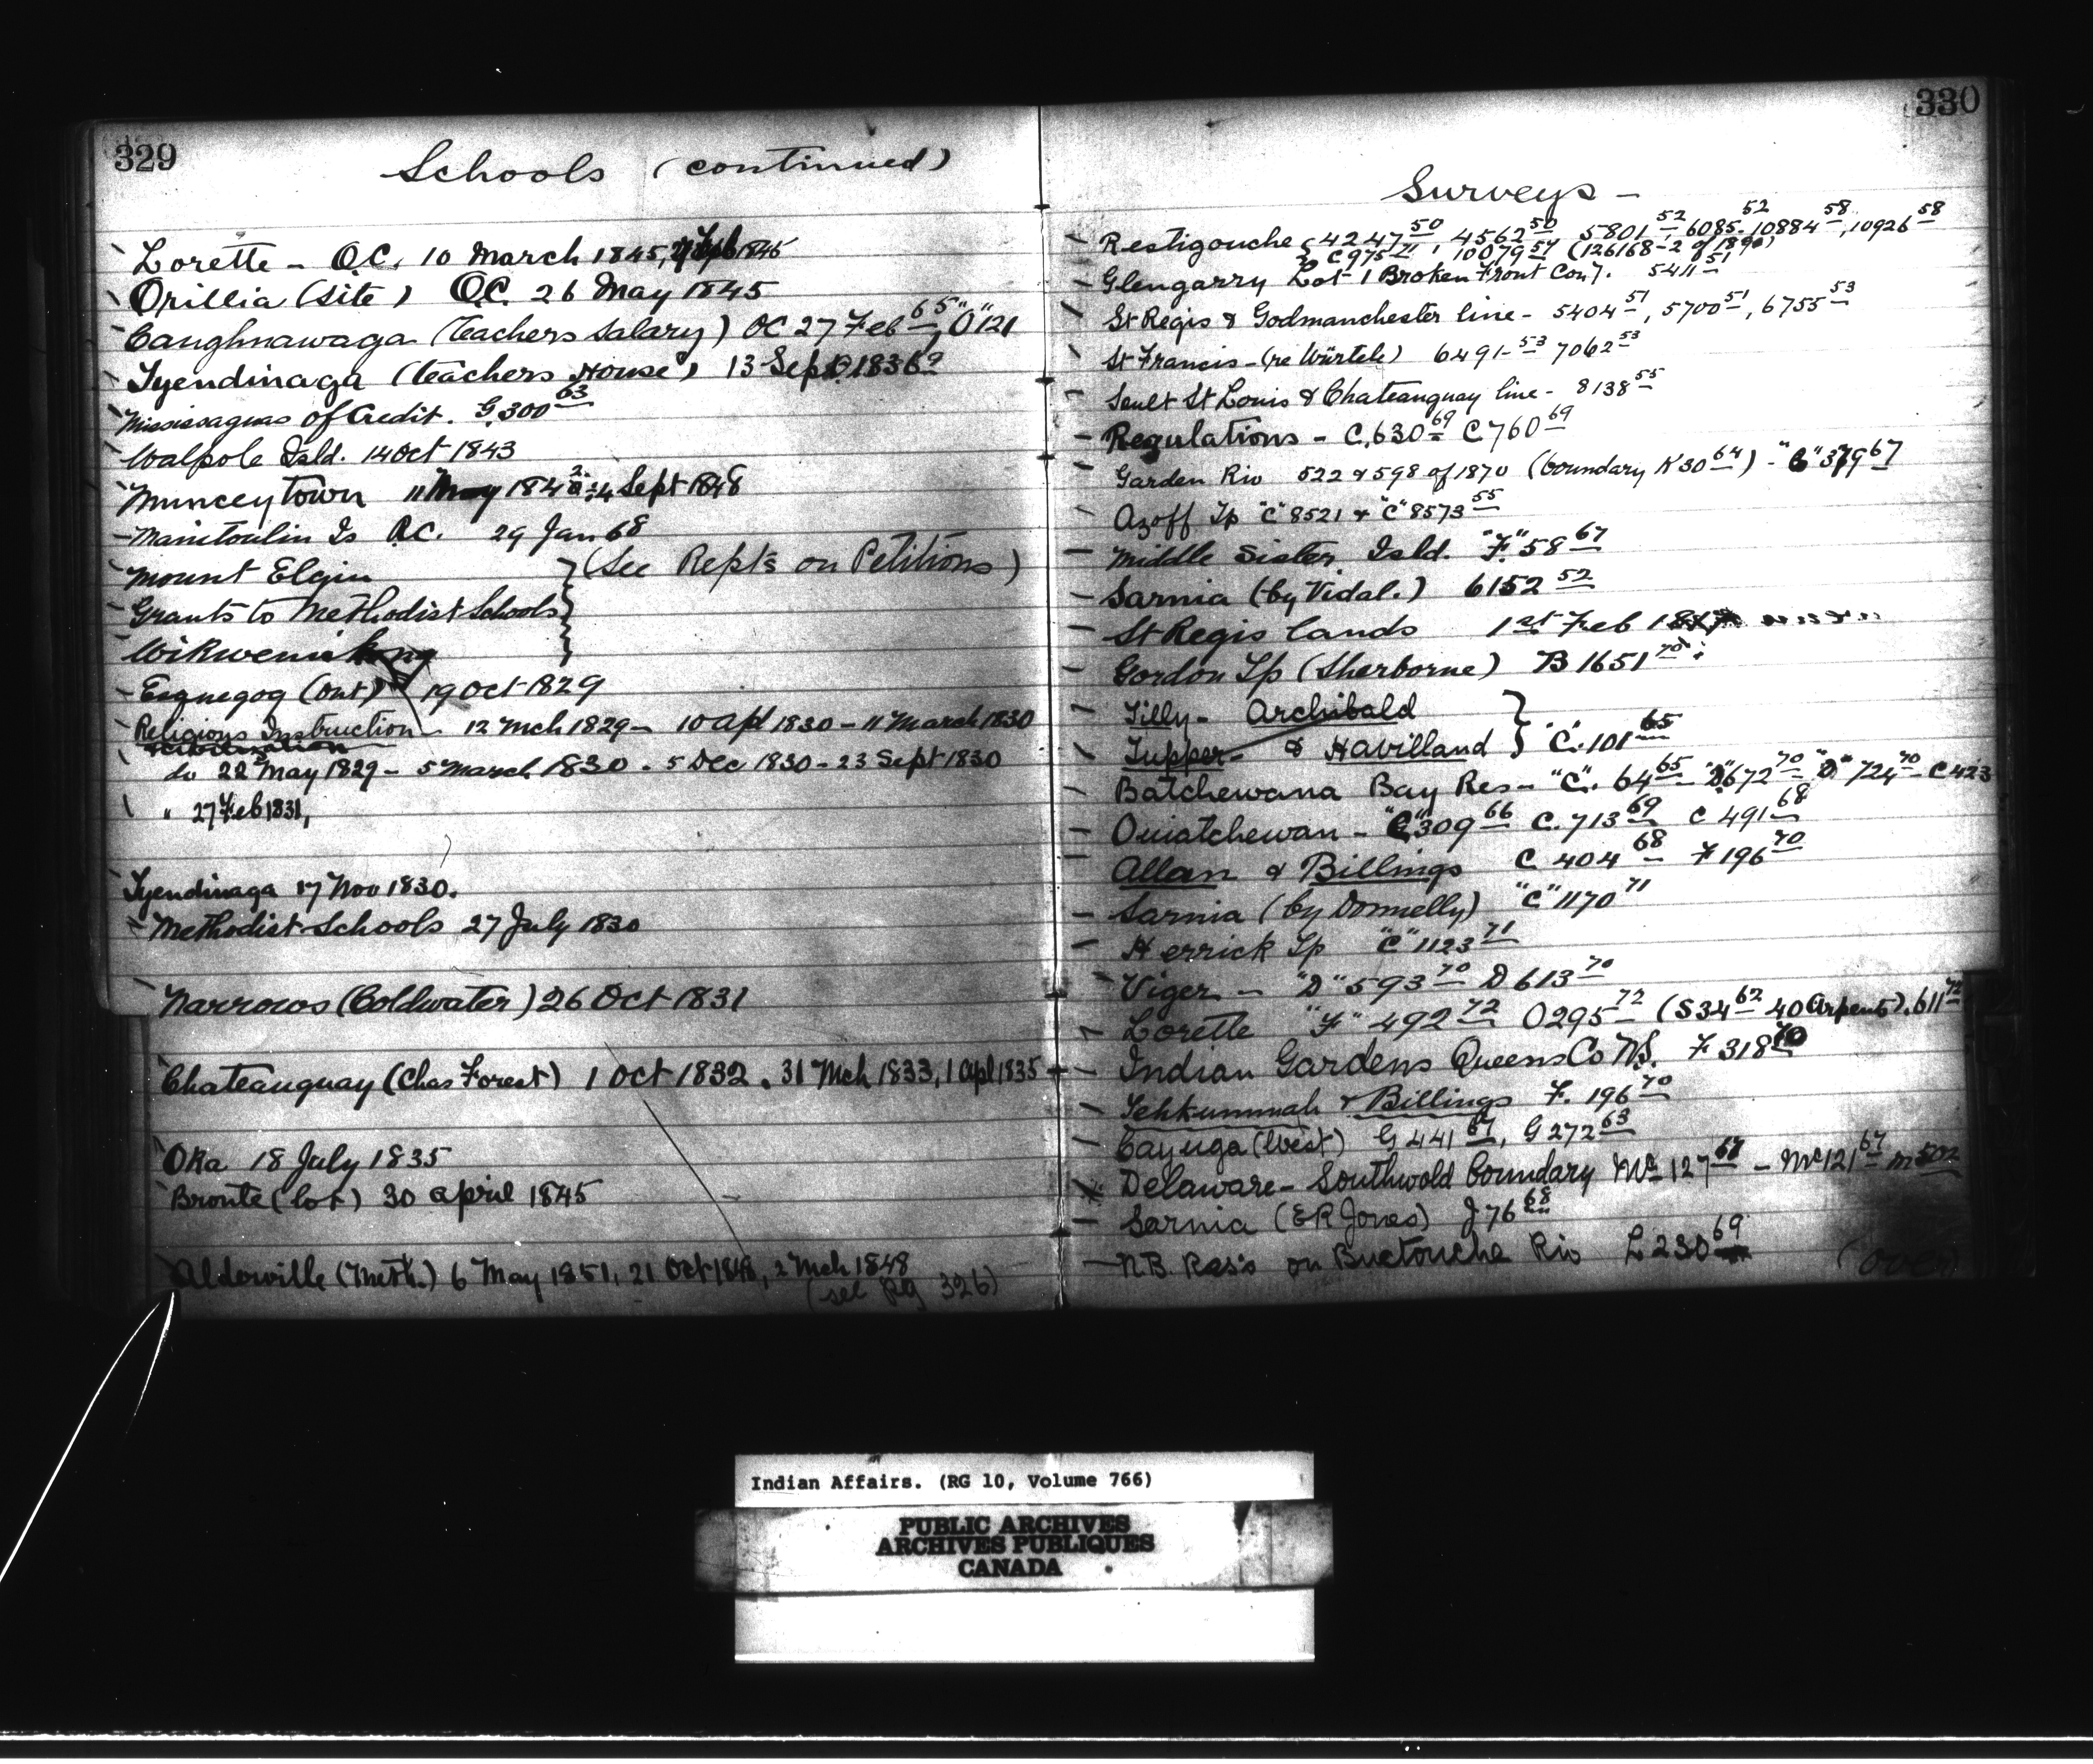 329
Schools (continued)
Lorette - O.C. 10 March 1845, Feb 1845
Orillia (site) O.C. 26 May 1845
Caughnawaga (teachers Salary) OC 27 Feb 65, "O" 121
Tyendinaga (teachers House) 13 Sept 1836
Mississaguas of Credit. G.300 63
Walpole Isld. 14 Oct 1843
Munceytown 11 May 1842 - 4 Sept 1848
Manitoulin Is R.C. 29 Jan 68
Mount Elgin } (See Repts on Petitions)
Grants to Methodist Schools }
Wikwemikong }
(Ont) 19 Oct 1829
Religious Instruction - 12 Mch 1829 - 10 apl 1830 - 11 March 1830
& Civilization
do 22 May 1829 - 5 March 1830 - 5 Dec 1830 - 23 Sept 1830
" 27 Feb 1831,
Tyendinaga 17 Nov 1830.
Methodist Schools 27 July 1830
Narrows (Coldwater) 26 Oct 1831
Chateauguay (Chas Forest) 1 Oct 1832. 31 Mch 1833, 1 apl 1835
Oka 18 July 1835
Bronte (lot) 30 april 1845
Alderville (Meth.) 6 May 1851, 21 Oct 1848, 2 Mch 1848
(see Pg 326)
330
Surveys -
Restigouche { 4247 50, 4562 50 5801 52, 6085 52 10884 58, 10926 58
C 975 71, 10079 57 (126168-2 of 1890)
Glengarry Lot 1 Broken Front Con 7. 5411 51
St Regis & Godmanchester line - 5404 51, 5700 51, 6755 53
St Francis - (re Würtele) 6491 - 53 7062 53
Sault St Louis & Chateauguay line - 8138 55
Regulations - C.630 69 C 760 69
Garden Riv 522 & 598 of 1870 (boundary K 30 64) - "C" 379 67
Azoff Tp "C" 8521 & "C" 8573 55
Middle Sister Isld. "F" 58 67
Sarnia (by Vidal.) 6152 52
St Regis lands 1st Feb
Gordon Tp (Sherborne) B 1651 70
Tilly - Archibald }
Tupper - & Havilland } "C". 101 65
Batchewana Bay Res - "C". 64 65 - "D" 672 70 - "D" 724 70 - C 423
Ouiatchewan - "C" 309 66 C. 713 69 C 491 68
Allan & Billings C 404 68 - F 196 70
Sarnia (by Donnelly) "C" 1170 71
Herrick Tp "C" 1123 71
Viger - "D" 593 70 - D 613 70
Lorette "F" 492 72 O 295 72 (S 34 62 40 Arpents). 611 72
Indian Gardens Queens Co N.S. F 318 70
Tehkummah & Billings F. 196 70
Cayuga (West) G 441 67, G 272 63
Delaware - Southwold boundary Mc 127 67 - Mc 121 67 - M 502
Sarnia (E R Jones) J 76 68
N.B. Res's on Buctouche Riv L 230 69
(over)
Indian Affairs. (RG 10, Volume 766)
PUBLIC ARCHIVES
ARCHIVES PUBLIQUES
CANADA